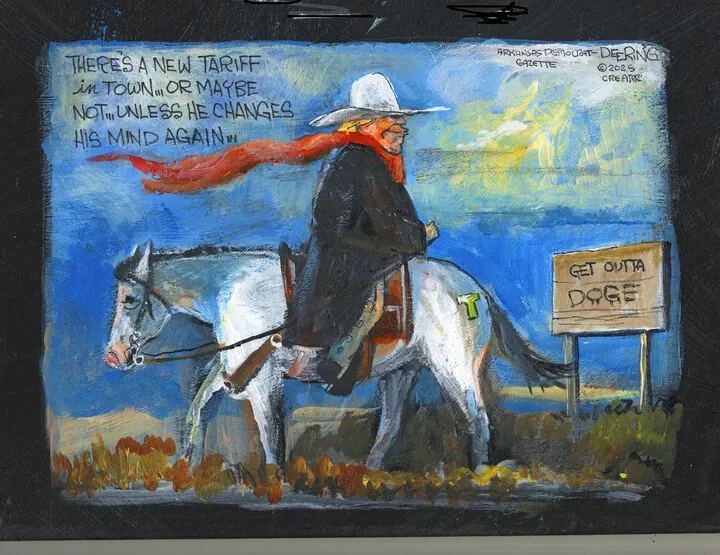 THERE'S A NEW TARIFF
in TOWN... OR MAYBE
NOT... UNLESS HE CHANGES
HIS MIND AGAIN...
ARKANSAS DEMOCRAT- DEERING
GAZETTE ©2025
CREATORS
GET OUTTA
DOGE
T